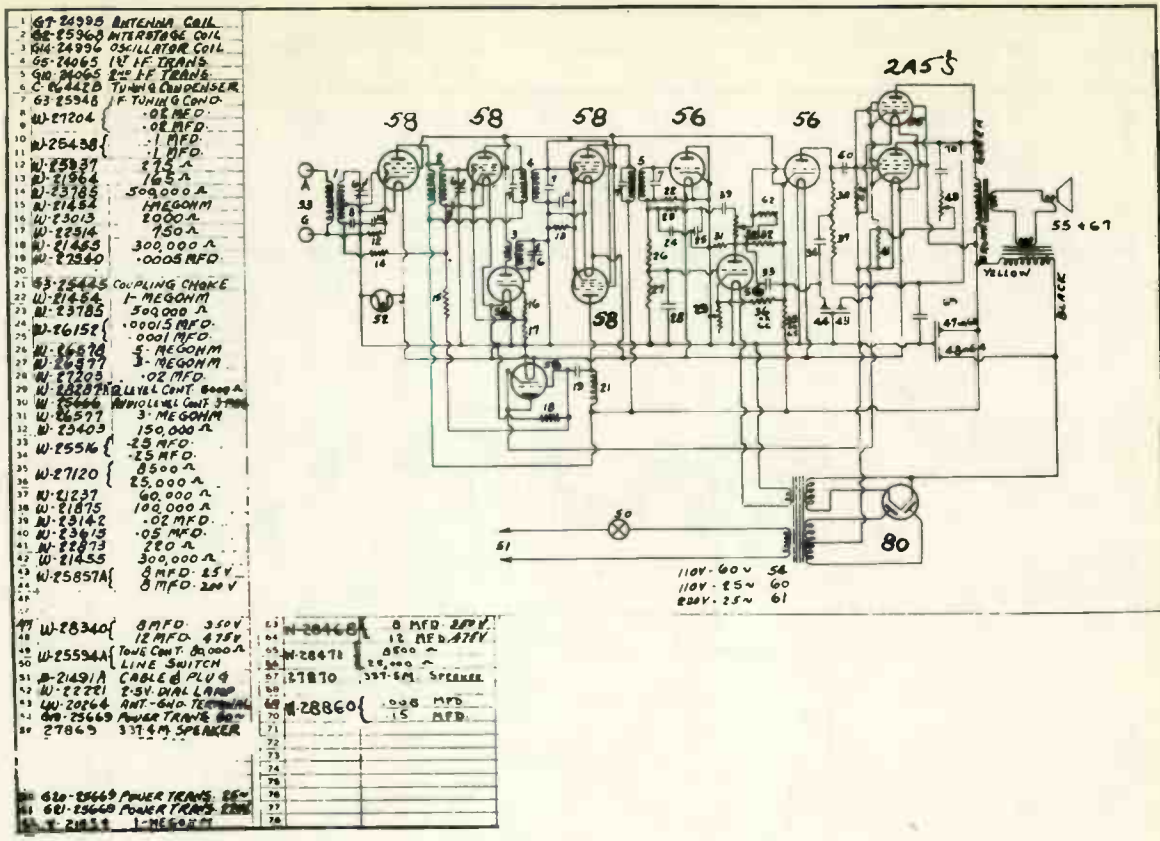 1 G7-24995 ANTENNA COIL
2 G2-25968 INTERSTAGE COIL
3 G14-24996 OSCILLATOR COIL
4 G5-24065 1ST I-F TRANS.
5 G10-24065 2ND I-F TRANS.
6 C-26442B TUNING CONDENSER
7 G3-25948 I-F TUNING COND.
8 W-27204 { .02 MFD.
9 .02 MFD.
10 W-25438 { .1 MFD.
11 .1 MFD.
12 W-25937 275 Ω
13 W-21964 165 Ω
14 W-23785 500,000 Ω
15 W-21454 1-MEGOHM
16 W-23013 2000 Ω
17 W-22514 750 Ω
18 W-21455 300,000 Ω
19 W-27340 .0005 MFD.
20
21 G3-25445 COUPLING CHOKE
22 W-21454 1-MEGOHM
23 W-23785 500,000 Ω
24 W-26152 { .00015 MFD.
25 .0001 MFD.
26 W-26578 5-MEGOHM
27 W-26577 3-MEGOHM
28 W-27203 .02 MFD.
29 W-28287 LEVEL CONT.
30 W-25666 AUDIO LEVEL CONT.
31 W-26577 3-MEGOHM
32 W-23403 150,000 Ω
33 W-25516 { .25 MFD.
34 .25 MFD.
35 W-27120 { 8500 Ω
36 25,000 Ω
37 W-21237 60,000 Ω
38 W-21875 100,000 Ω
39 W-23142 .02 MFD.
40 W-23615 .05 MFD.
41 W-22873 220 Ω
42 W-21455 300,000 Ω
43 W-25857A { 8 MFD. 25V
44 8 MFD. 200V
47 W-28340 { 8 MFD. 350V
48 12 MFD. 475V
49 W-25594A { TONE CONT. 80,000 Ω
50 LINE SWITCH
51 B-21491A CABLE & PLUG
52 W-22221 2.5V. DIAL LAMP
53 W-20264 ANT.-GND. TERMINAL
54 25669 POWER TRANS. 60~
55 27869 337-4M SPEAKER
60 G20-25669 POWER TRANS. 25~
61 G21-25669 POWER TRANS.
62 1-MEGOHM
63 W-28468 { 8 MFD. 250V
64 12 MFD. 475V
65 W-28471 { 8500 Ω
66 25,000 Ω
67 27870 337-5M. SPEAKER
68
69 W-28860 { .008 MFD
70 .15 MFD.
71
72
73
74
75
76
77
78
58 58 58 56 56 2A5'S
58
80
A
53
G
52
50
51
55 & 67
GREEN
YELLOW
BLACK
110V - 60~ 54
110V - 25~ 60
220V - 25~ 61